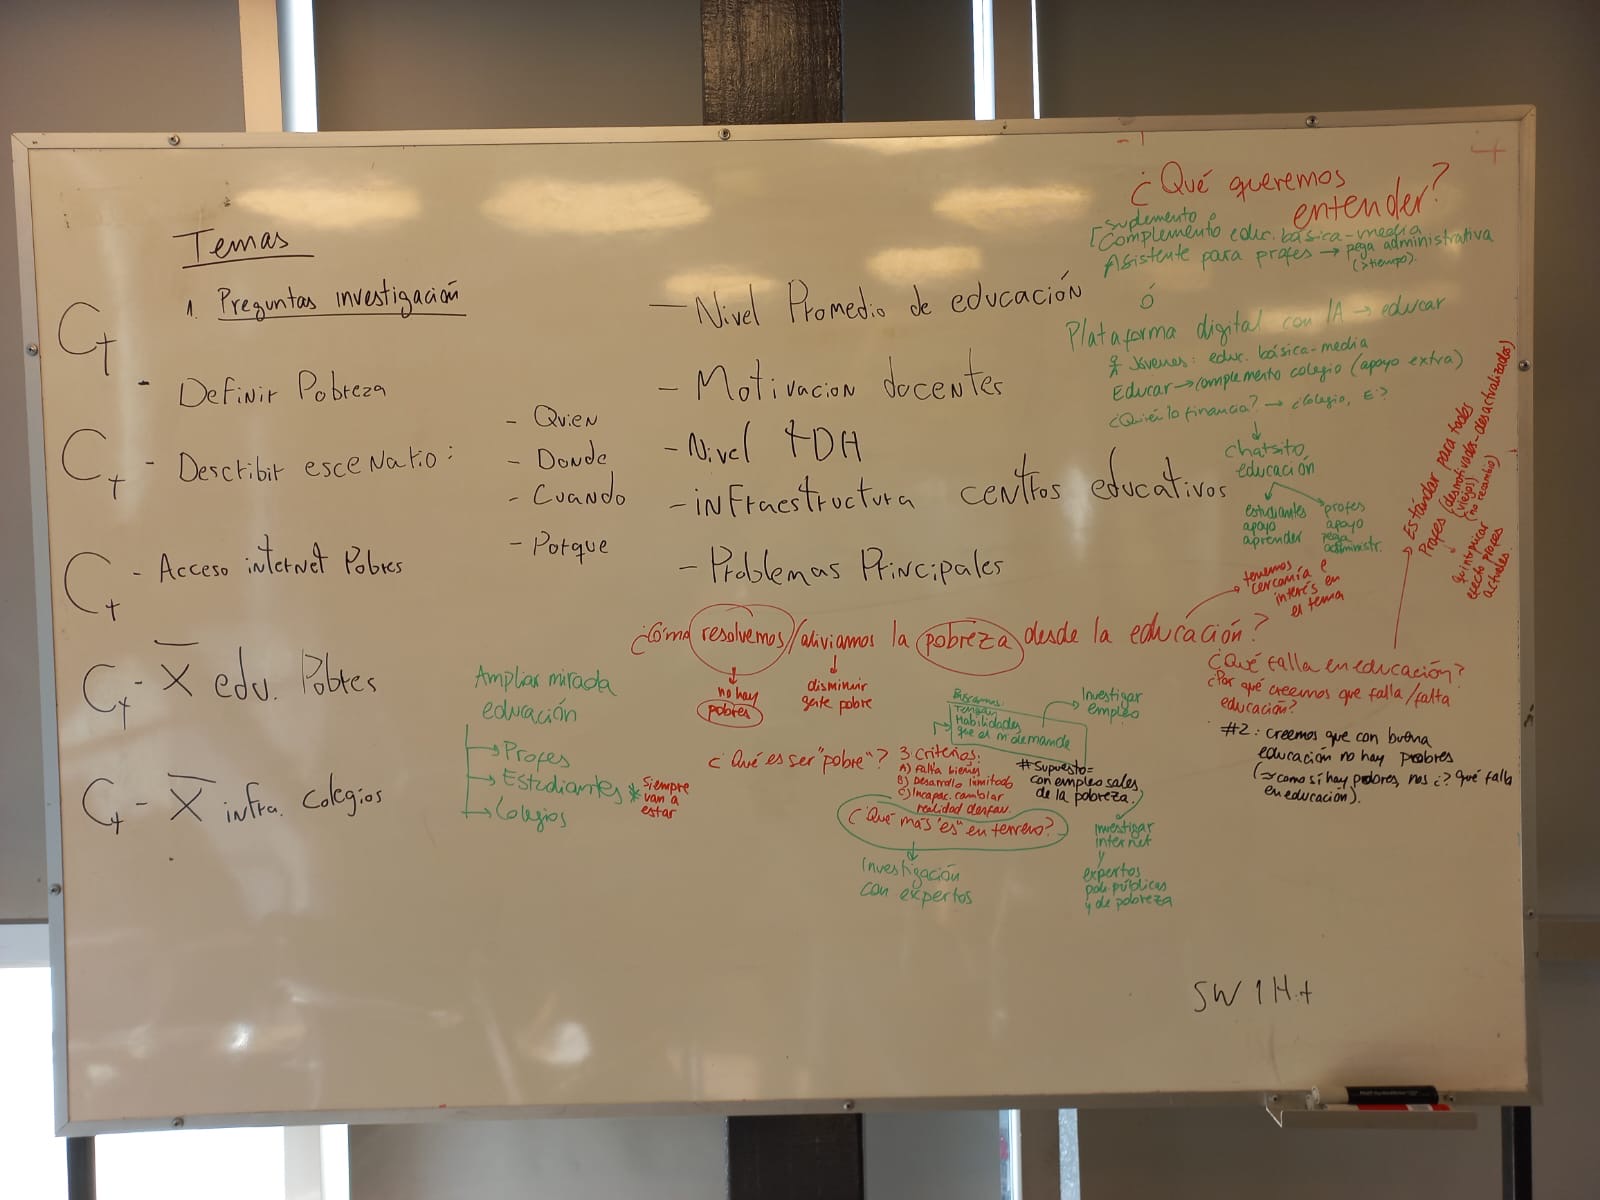 Temas
1. Preguntas investigación
C+ - Definir Pobreza
C+ - Describir escenario:
- Quien
- Donde
- Cuando
- Porque
C+ - Acceso internet Pobres
C+ - X edu. Pobres
C+ - X infra. Colegios
- Nivel Promedio de educación
- Motivacion docentes
- Nivel TDA
- infraestructura centros educativos
- Problemas Principales
¿Qué queremos
entender?
suplemento o
Complemento educ. básica-media
Asistente para profes → pega administrativa
(>tiempo).
ó
Plataforma digital con IA → educar
Jóvenes: educ. básica-media
Educar → complemento colegio (apoyo extra)
¿Quién lo financia? → ¿Colegio, E°?
chatsito
educación
estudiantes
apoyo
aprender
profes
apoyo
pega
administr.
Estándar para todos
Profes (desmotivados-desactualizados)
(viejos)
(no recambio)
quintoplicar
efecto profes
actuales
tenemos
cercanía e
interés en
el tema
¿Cómo resolvemos/aliviamos la pobreza desde la educación?
no hay
pobres
disminuir
gente pobre
¿Qué falla en educación?
¿Por qué creemos que falla/falta
educación?
#2: creemos que con buena
educación no hay pobres
(→ como sí hay pobres, nos ¿? qué falla
en educación).
Ampliar mirada
educación
→ Profes
→ Estudiantes *
→ Colegios
Siempre
van a
estar
Buscamos:
Tengan
Habilidades
que el m° demande
Investigar
empleo
¿Qué es ser "pobre"?
3 criterios:
A) Falta bienes
B) Desarrollo limitado
C) Incapac. cambiar
realidad desfav.
# Supuesto=
con empleo sales
de la pobreza.
¿Qué más "es" en terreno?
Investigación
con expertos
investigar
internet
y
expertos
pol. públicas
y de pobreza
5W 1H.+